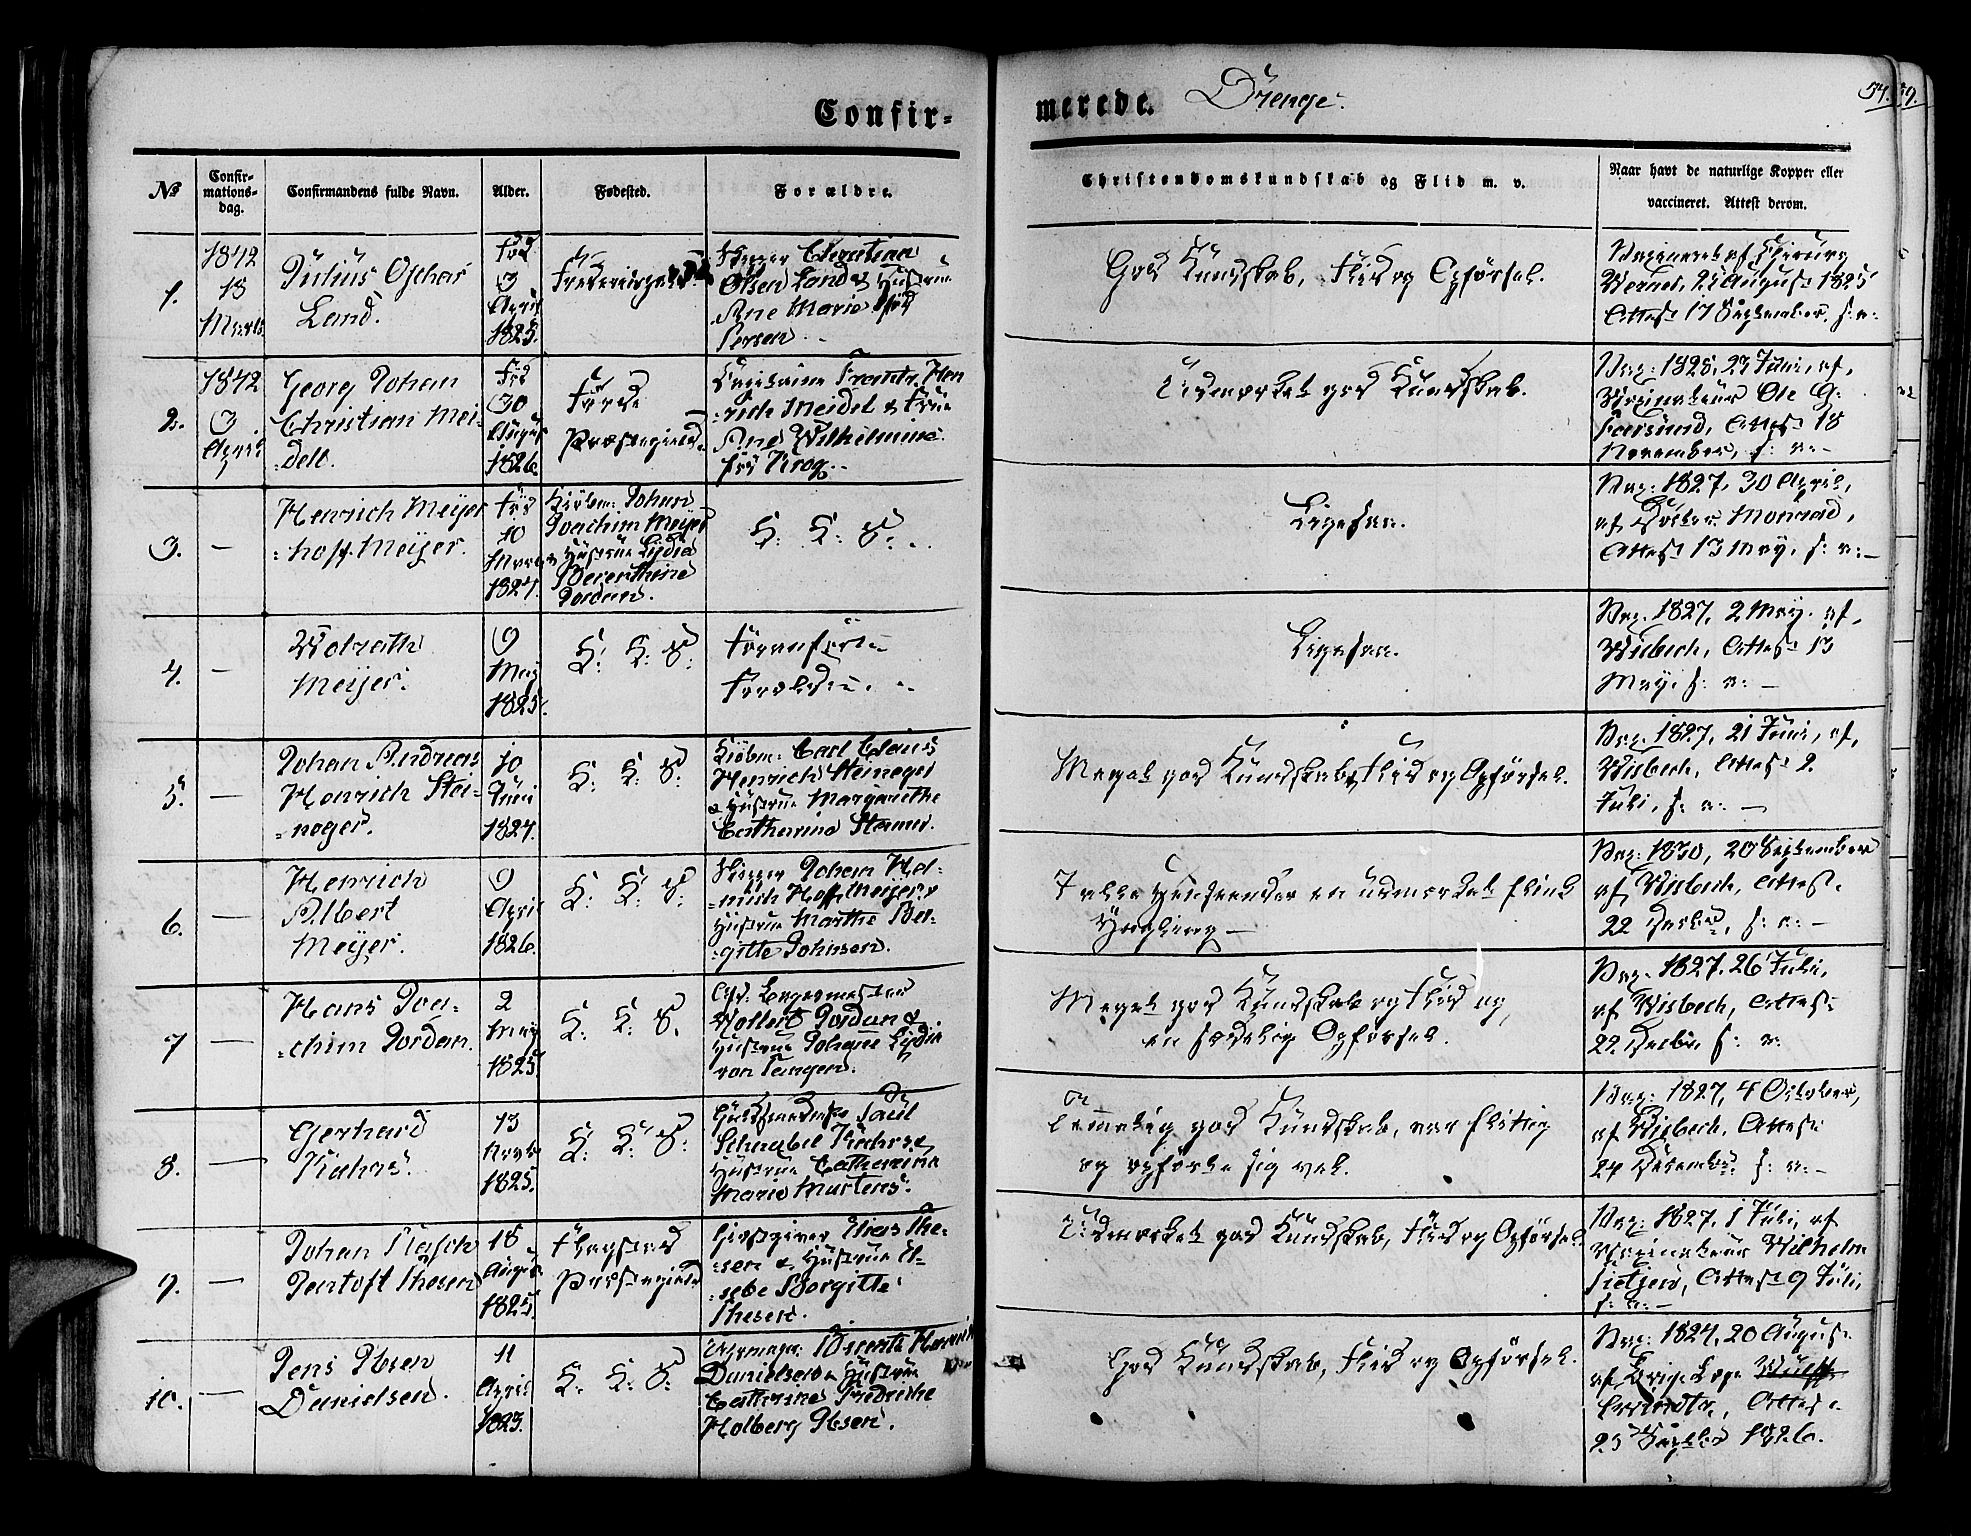 Confir-
merede. Drenge.
No
Confir-
mations-
dag.
Confirmandens fulde Navn.
Alder.
Fødested.
Forældre.
Christendomskundskab og Flid m. v.
Naar havt de naturlige Kopper eller
vaccineret. Attest derom.
1.
1842
13
Marts
Julius Oschar
Land.
Fød
3
April
1825.
Christian
Olsen Land & Hustrue
Ane Marie fød
Iversen
God Kundskab, Flid og Opførsel.
August 1825
Attest 17 September, s: v:
2.
1842
3
April
Georg Johan
Christian Mei-
dell.
Fød
30
August
1826.
Førde
Præstegield.
Capitaine Frantz Hen
rich Meidel & Frue
Ane Wilhelmine
fød Krog.
Udmærket god Kundskab.
Vac: 1828, 27 Juni, af
Vaccinateur Ole G:
Farsund, Attest 18
November, s: v: –
3.
–
Henrich Meyer
hoff Meijer.
Fød
10
Marts
1827.
Kiøbm: Johan
Joachim Meyer
& Hustrue Lydia
Berenthine
Jordan.
S: S: B:
Ligesaa.
Vac: 1827, 30 April,
af Doctor Monrad,
Attest 13 May, s: v: –
4.
–
Wolrath
Meijer.
9
May
1825.
S: S: B:
Foranførte
Forældre.
Ligesaa.
Vac. 1827, 2 May. af
Wisbech, Attest 13
May, s: v: –
5.
–
Johan Andreas
Henrich Stei-
neger.
10
Juni
1827.
S: S: B:
Kiøbm: Carl Claus
Henrich Steineger
& Hustrue Margarethe
Catharina Stamer.
Meget god Kundskab, Flid og Opførsel.
Vac. 1827, 21 Juni, af
Wisbech, Attest 2
Juli, s: v: –
6.
–
Henrich
Albert
Meyer.
9
April
1826.
S: S: B:
Johan Hen-
rich Hoff Meijer &
Hustrue Marthe Ber-
gitte Johnsen.
I alle Henseender en udmærket flink
Yngling –
Vac: 1830, 20 September
af Wisbech, Attest
22 s: v: –
7
–
Hans Joa-
chim Jordan.
2
May
1825.
S: S: B.
Vollert Jordan &
Hustrue Johanne Lydia
von Tangen.
Meget god Kundskab og Flid og
en sædelig Opførsel.
Vac. 1827, 26 Juli,
af Wisbech, Attest
22 Decbr. s: v:
8.
–
Gerhard
Kahrs.
13
Novb
1825.
S: S: B:
Paul
Schnabel Kahrs &
Hustrue Catharina
Maria Martens.
Temmelig god Kundskab, var flittig
og opførte sig vel.
Vac: 1827, 4 October,
af Wisbech, Attest
24 December s: v: –
9.
–
Johan Flasch
Jentoft Thesen
18
August
1825.
Præstegield
Giæstgiver Elias The-
sen & Hustrue El-
sebe Borgitte
Thesen.
Udmærket god Kundskab, Flid og Opførsel.
Vac: 1827, 1 Juli, af
Vaccinateur Wilhelm
Tietjens, Attest 9 Juli,
s: v: –
10.
–
Jens Ibsen
Danielsen.
11
April
1823.
S: S: B:
Berent
Danielsen & Hustrue
Catharina Fredrikke
Holberg Ibsen.
God Kundskab, Flid og Opførsel.
Vac: 1824, 20 August
af Attest
1826.